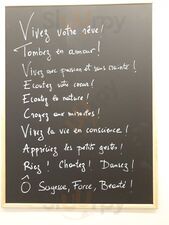 Vivez votre rêve!
Tombez en amour!
Vivez avec passion et sans crainte!
Ecoutez votre coeur!
Ecoutez la nature!
Croyez aux miracles!
Vivez la vie en conscience!
Appréciez les petits gestes!
Riez! Chantez! Dansez!
Ô Sagesse, Force, Beauté!